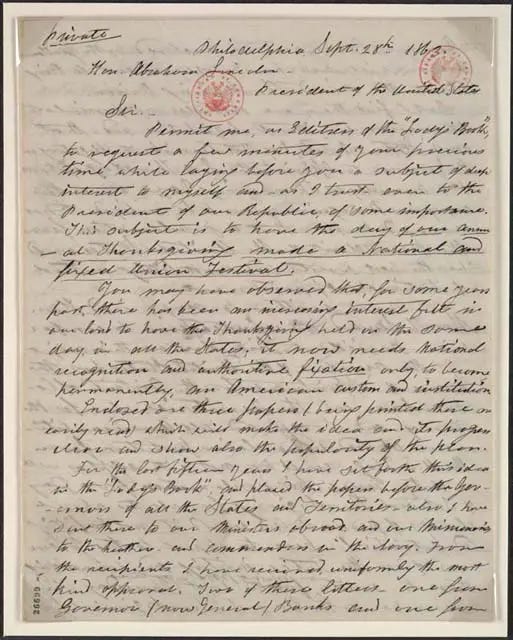 Private
Philadelphia, Sept. 28th 1863.
Hon. Abraham Lincoln -
President of the United States
Sir. -
Permit me, as Editress of the "Lady's Book",
to request a few minutes of your precious
time, while laying before you a subject of deep
interest to myself and - as I trust - even to the
President of our Republic, of some importance.
This subject is to have the day of our annu-
-al Thanksgiving made a National and
fixed Union Festival.
You may have observed that, for some years
past, there has been an increasing interest felt in
our land to have the Thanksgiving held on the same
day, in all the States; it now needs National
recognition and authoritive fixation, only, to become
permanently, an American custom and institution.
Enclosed are three papers (being printed these are
easily read) which will make the idea and its progress
clear and show also the popularity of the plan.
For the last fifteen years I have set forth this idea
in the "Lady's Book", and placed the papers before the Gov-
-ernors of all the States and Territories - also I have
sent these to our Ministers abroad, and our Missionaries
to the heathen - and commanders in the Navy. From
the recipients I have received, uniformly the most
kind approval. Two of these letters, one from
Governor (now General) Banks and one from
26699